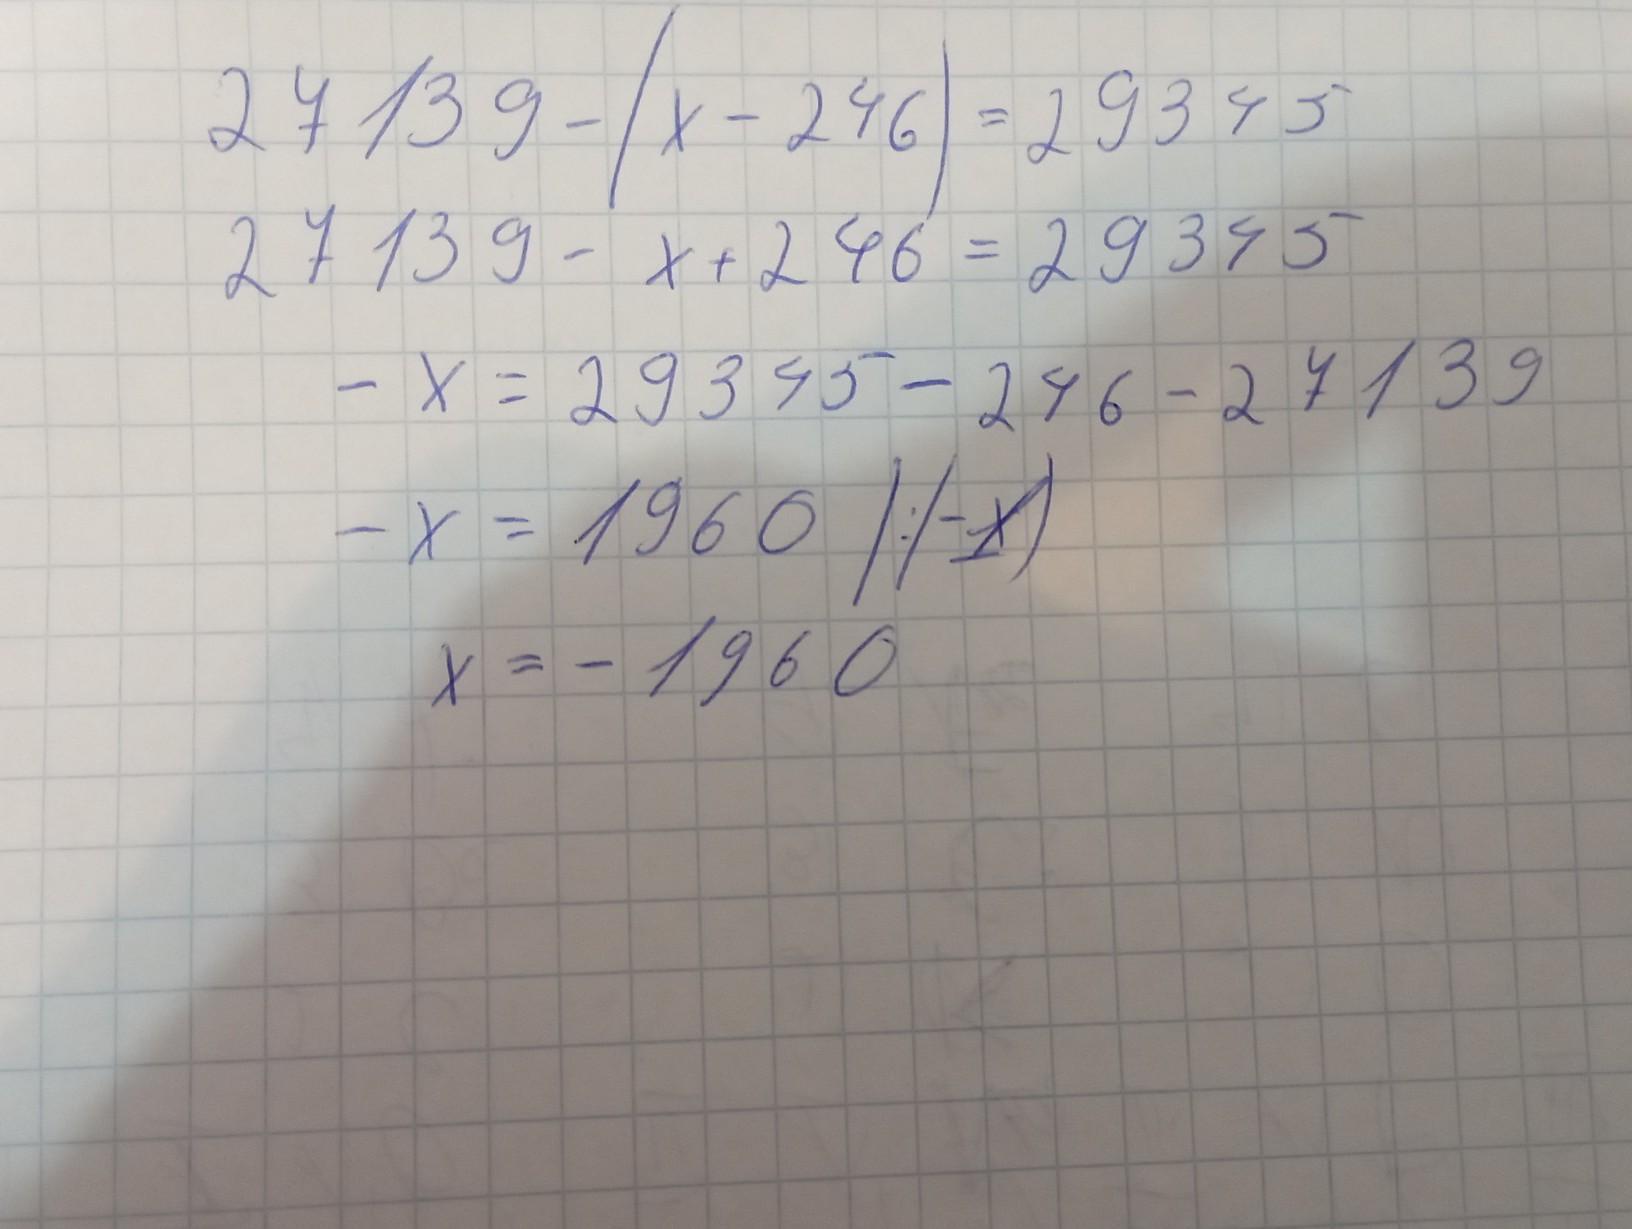 27139-(x-246)=29345
27139-x+246=29345
-x=29345-246-27139
-x=1960 |:(-1)
x=-1960